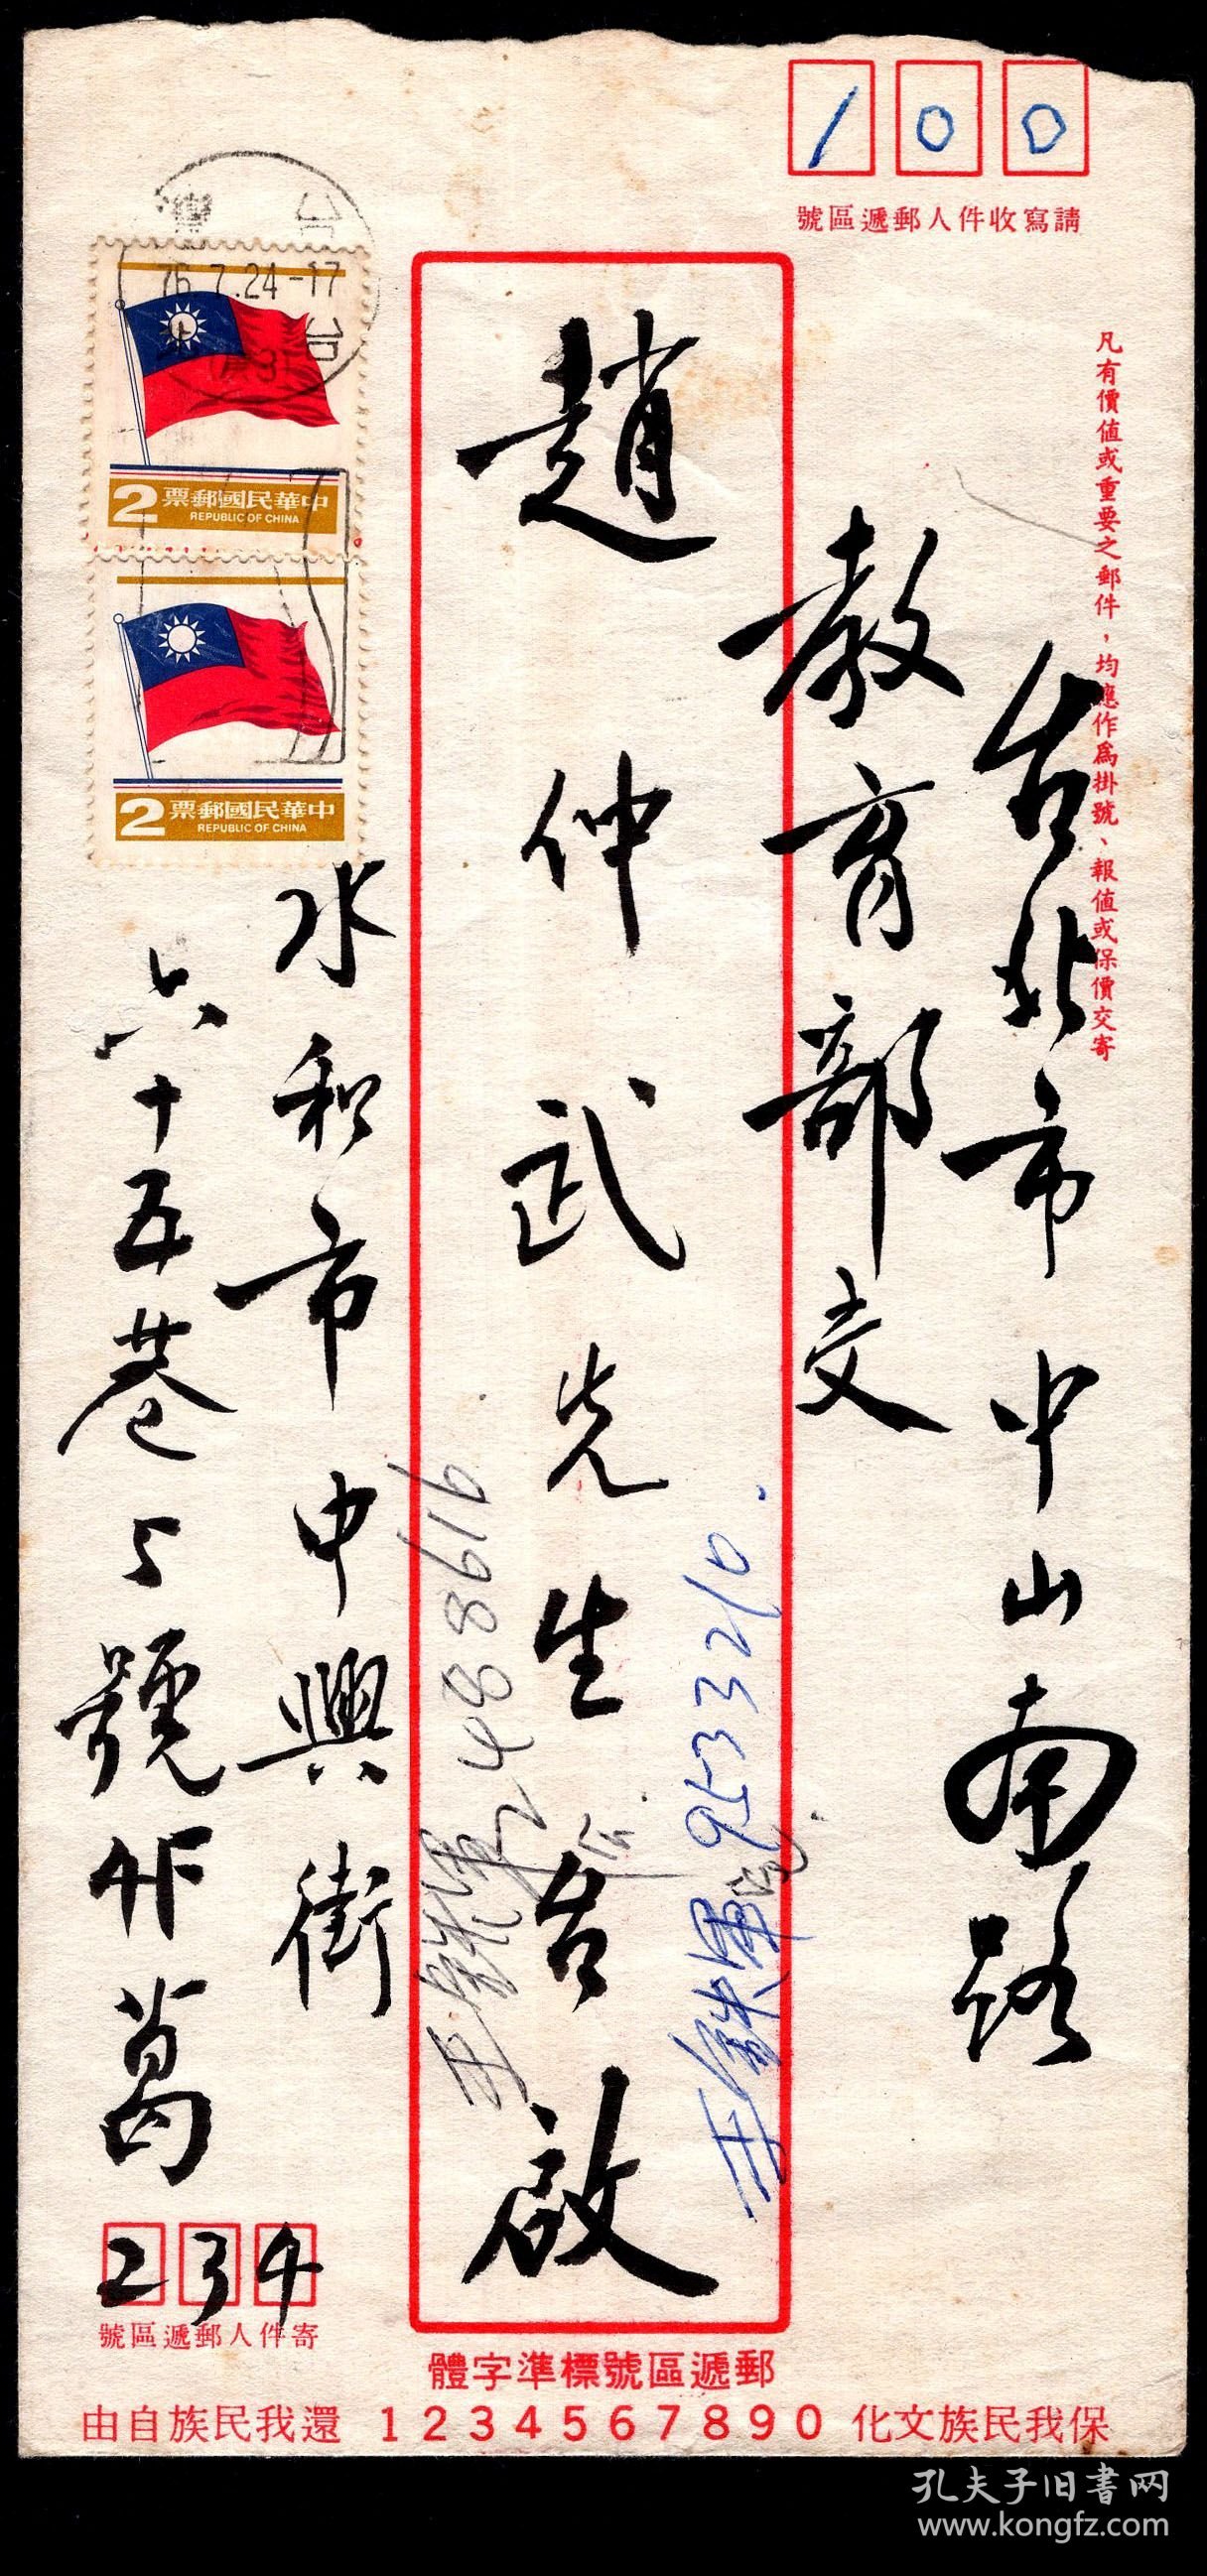 100
請寫收件人郵遞區號
凡有價值或重要之郵件，均應作為掛號、報值或保價交寄
台北市中山南路
教育部交
趙仲武先生台啟
王鐵軍 9533210
2488616
台
76.7.24-17
台
中華民國郵票
REPUBLIC OF CHINA
2
中華民國郵票
REPUBLIC OF CHINA
2
永和市中興街
六十五巷5號作葛
234
寄件人郵遞區號
郵遞區號標準字體
保我民族文化 1234567890 還我民族自由
孔夫子旧书网
www.kongfz.com